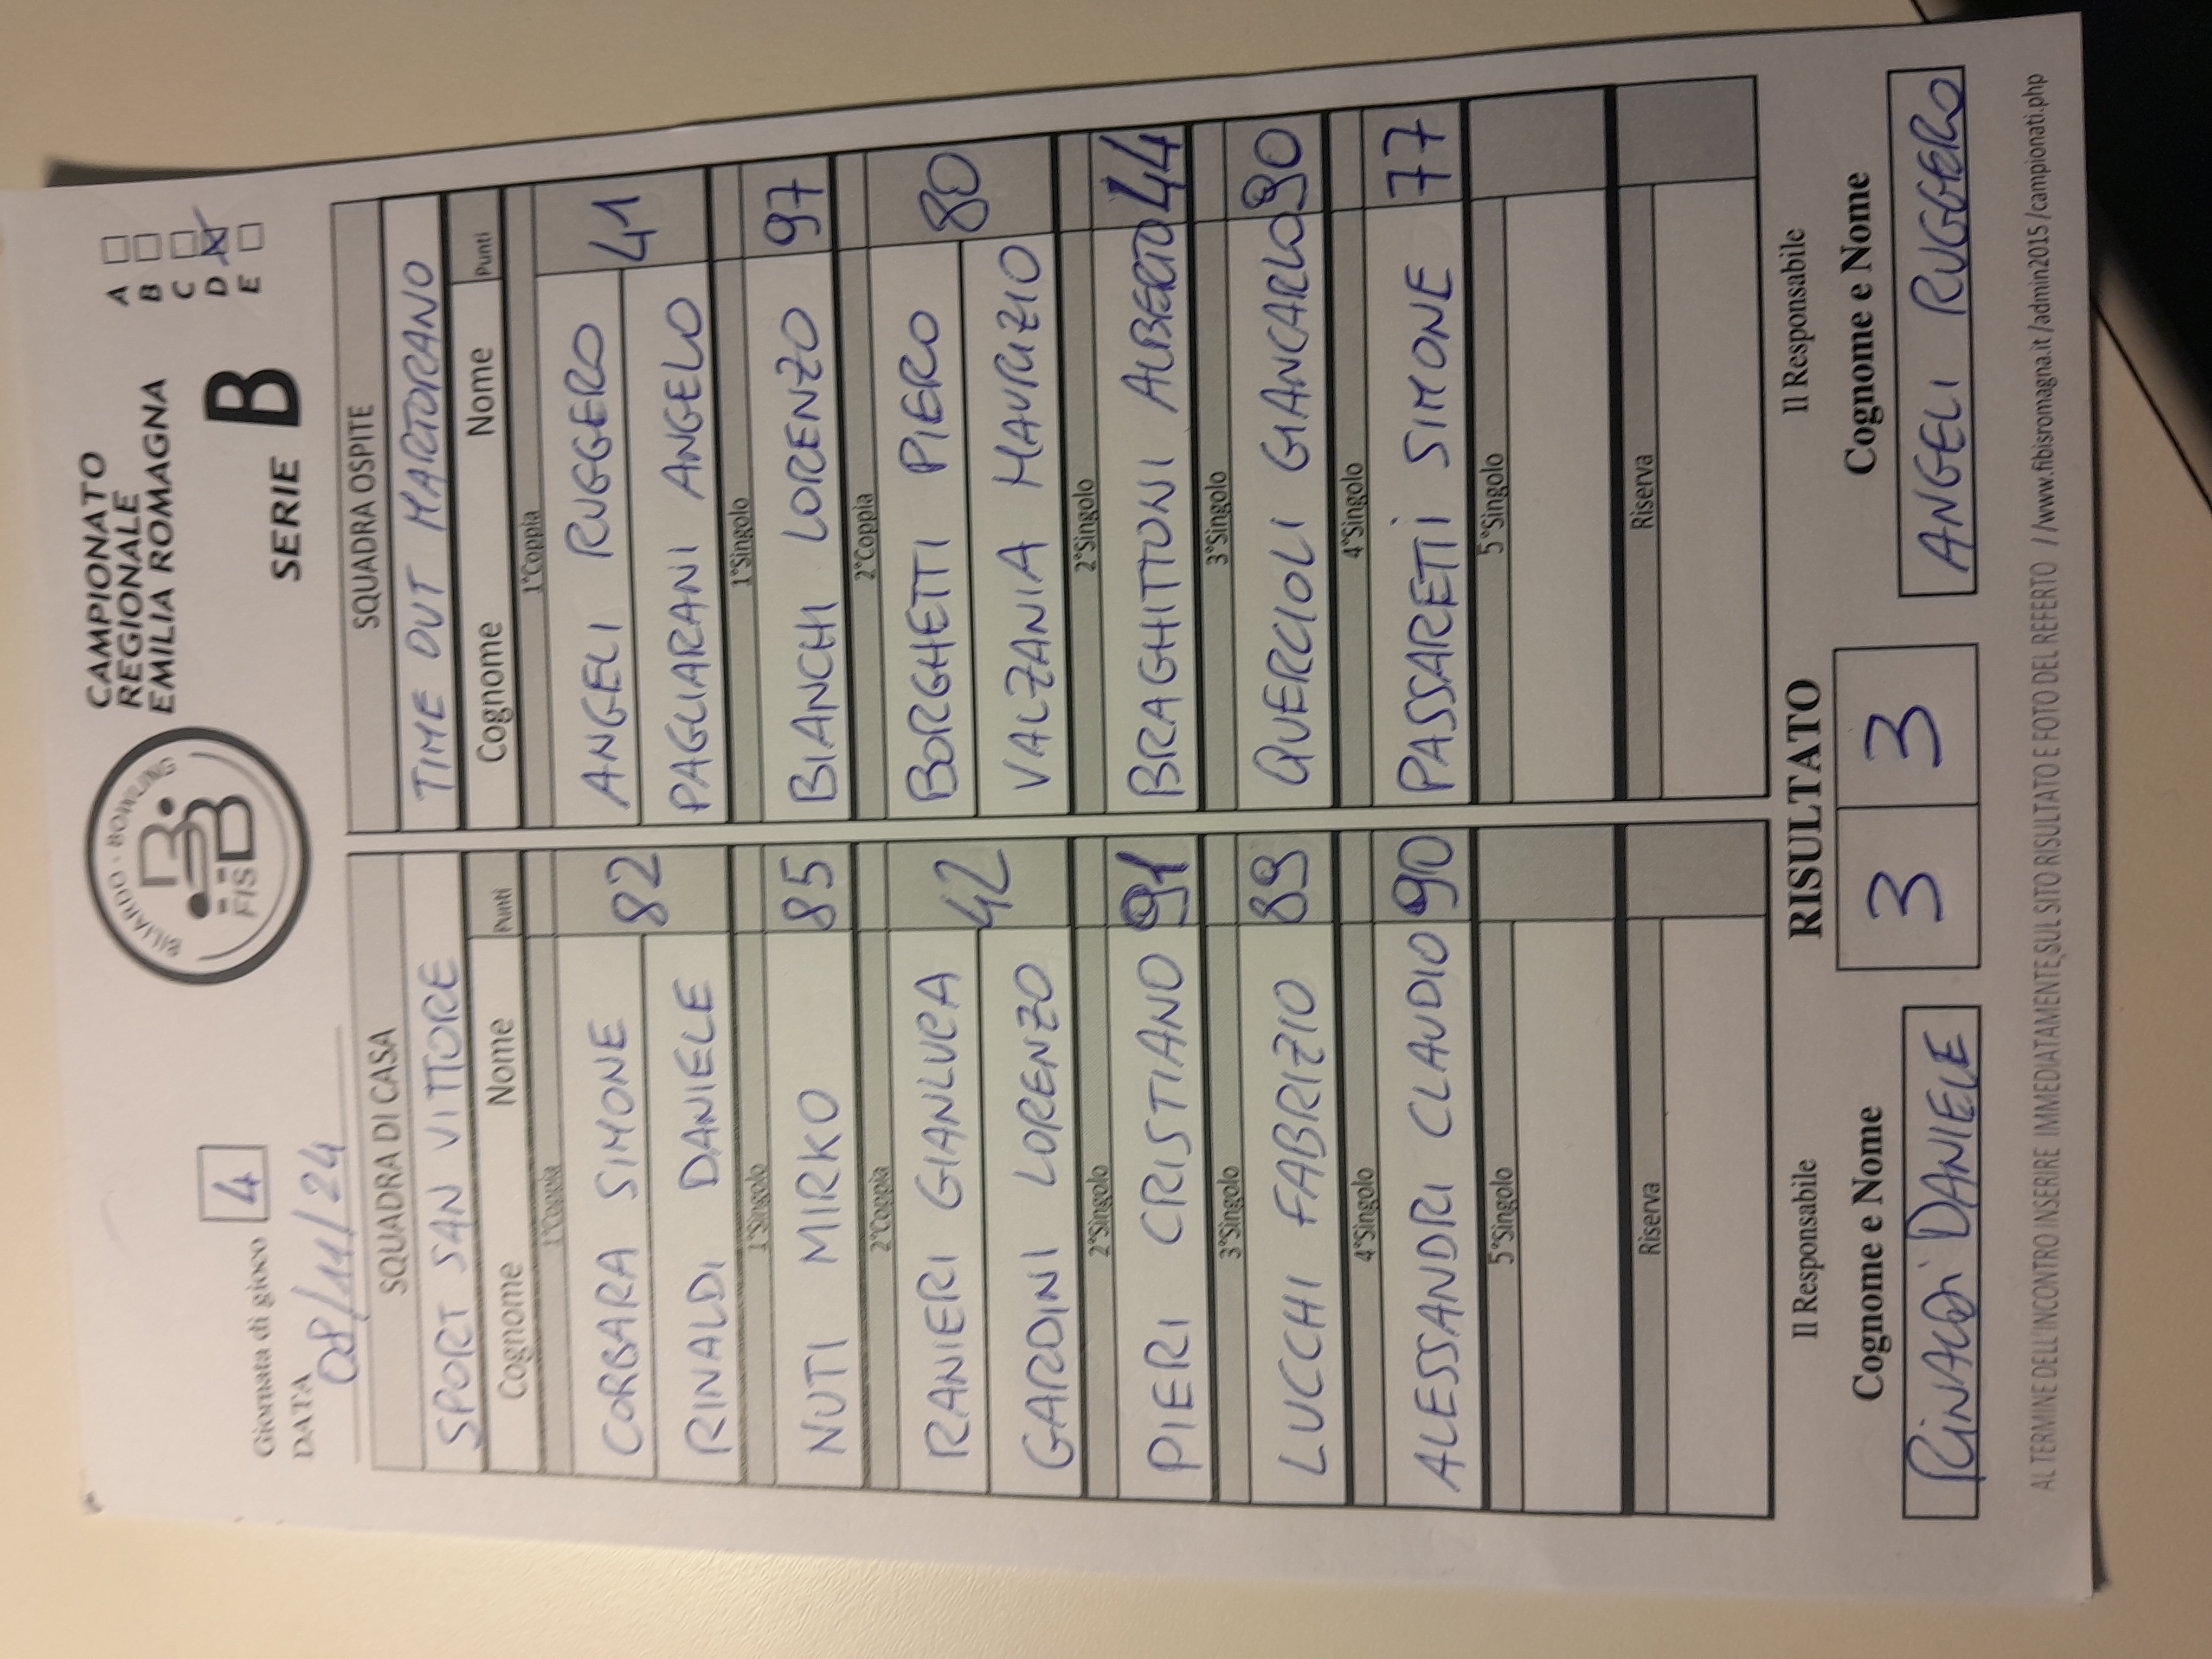 Giornata di gioco 4
DATA 08/11/24
BILIARDO - BOWLING
FISBB
CAMPIONATO
REGIONALE
EMILIA ROMAGNA
SERIE B
A
B
C
D X
E
SQUADRA DI CASA SQUADRA OSPITE
SPORT SAN VITTORE TIME OUT MARTORANO
Cognome Nome Punti Cognome Nome Punti
1°Coppia 1°Coppia
CORBARA SIMONE 82 ANGELI RUGGERO 41
RINALDI DANIELE PAGLIARANI ANGELO
1°Singolo 1°Singolo
NUTI MIRKO 85 BIANCHI LORENZO 97
2°Coppia 2°Coppia
RANIERI GIANLUCA 42 BORGHETTI PIERO 80
GARDINI LORENZO VALZANIA MAURIZIO
2°Singolo 2°Singolo
PIERI CRISTIANO 91 BRAGHITTONI ALBERTO 44
3°Singolo 3°Singolo
LUCCHI FABRIZIO 89 QUERCIOLI GIANCARLO 90
4°Singolo 4°Singolo
ALESSANDRI CLAUDIO 90 PASSARETTI SIMONE 77
5°Singolo 5°Singolo
Riserva Riserva
Il Responsabile RISULTATO Il Responsabile
Cognome e Nome 3 3 Cognome e Nome
RINALDI DANIELE ANGELI RUGGERO
AL TERMINE DELL'INCONTRO INSERIRE IMMEDIATAMENTE SUL SITO RISULTATO E FOTO DEL REFERTO //www.fibisromagna.it/admin2015/campionati.php